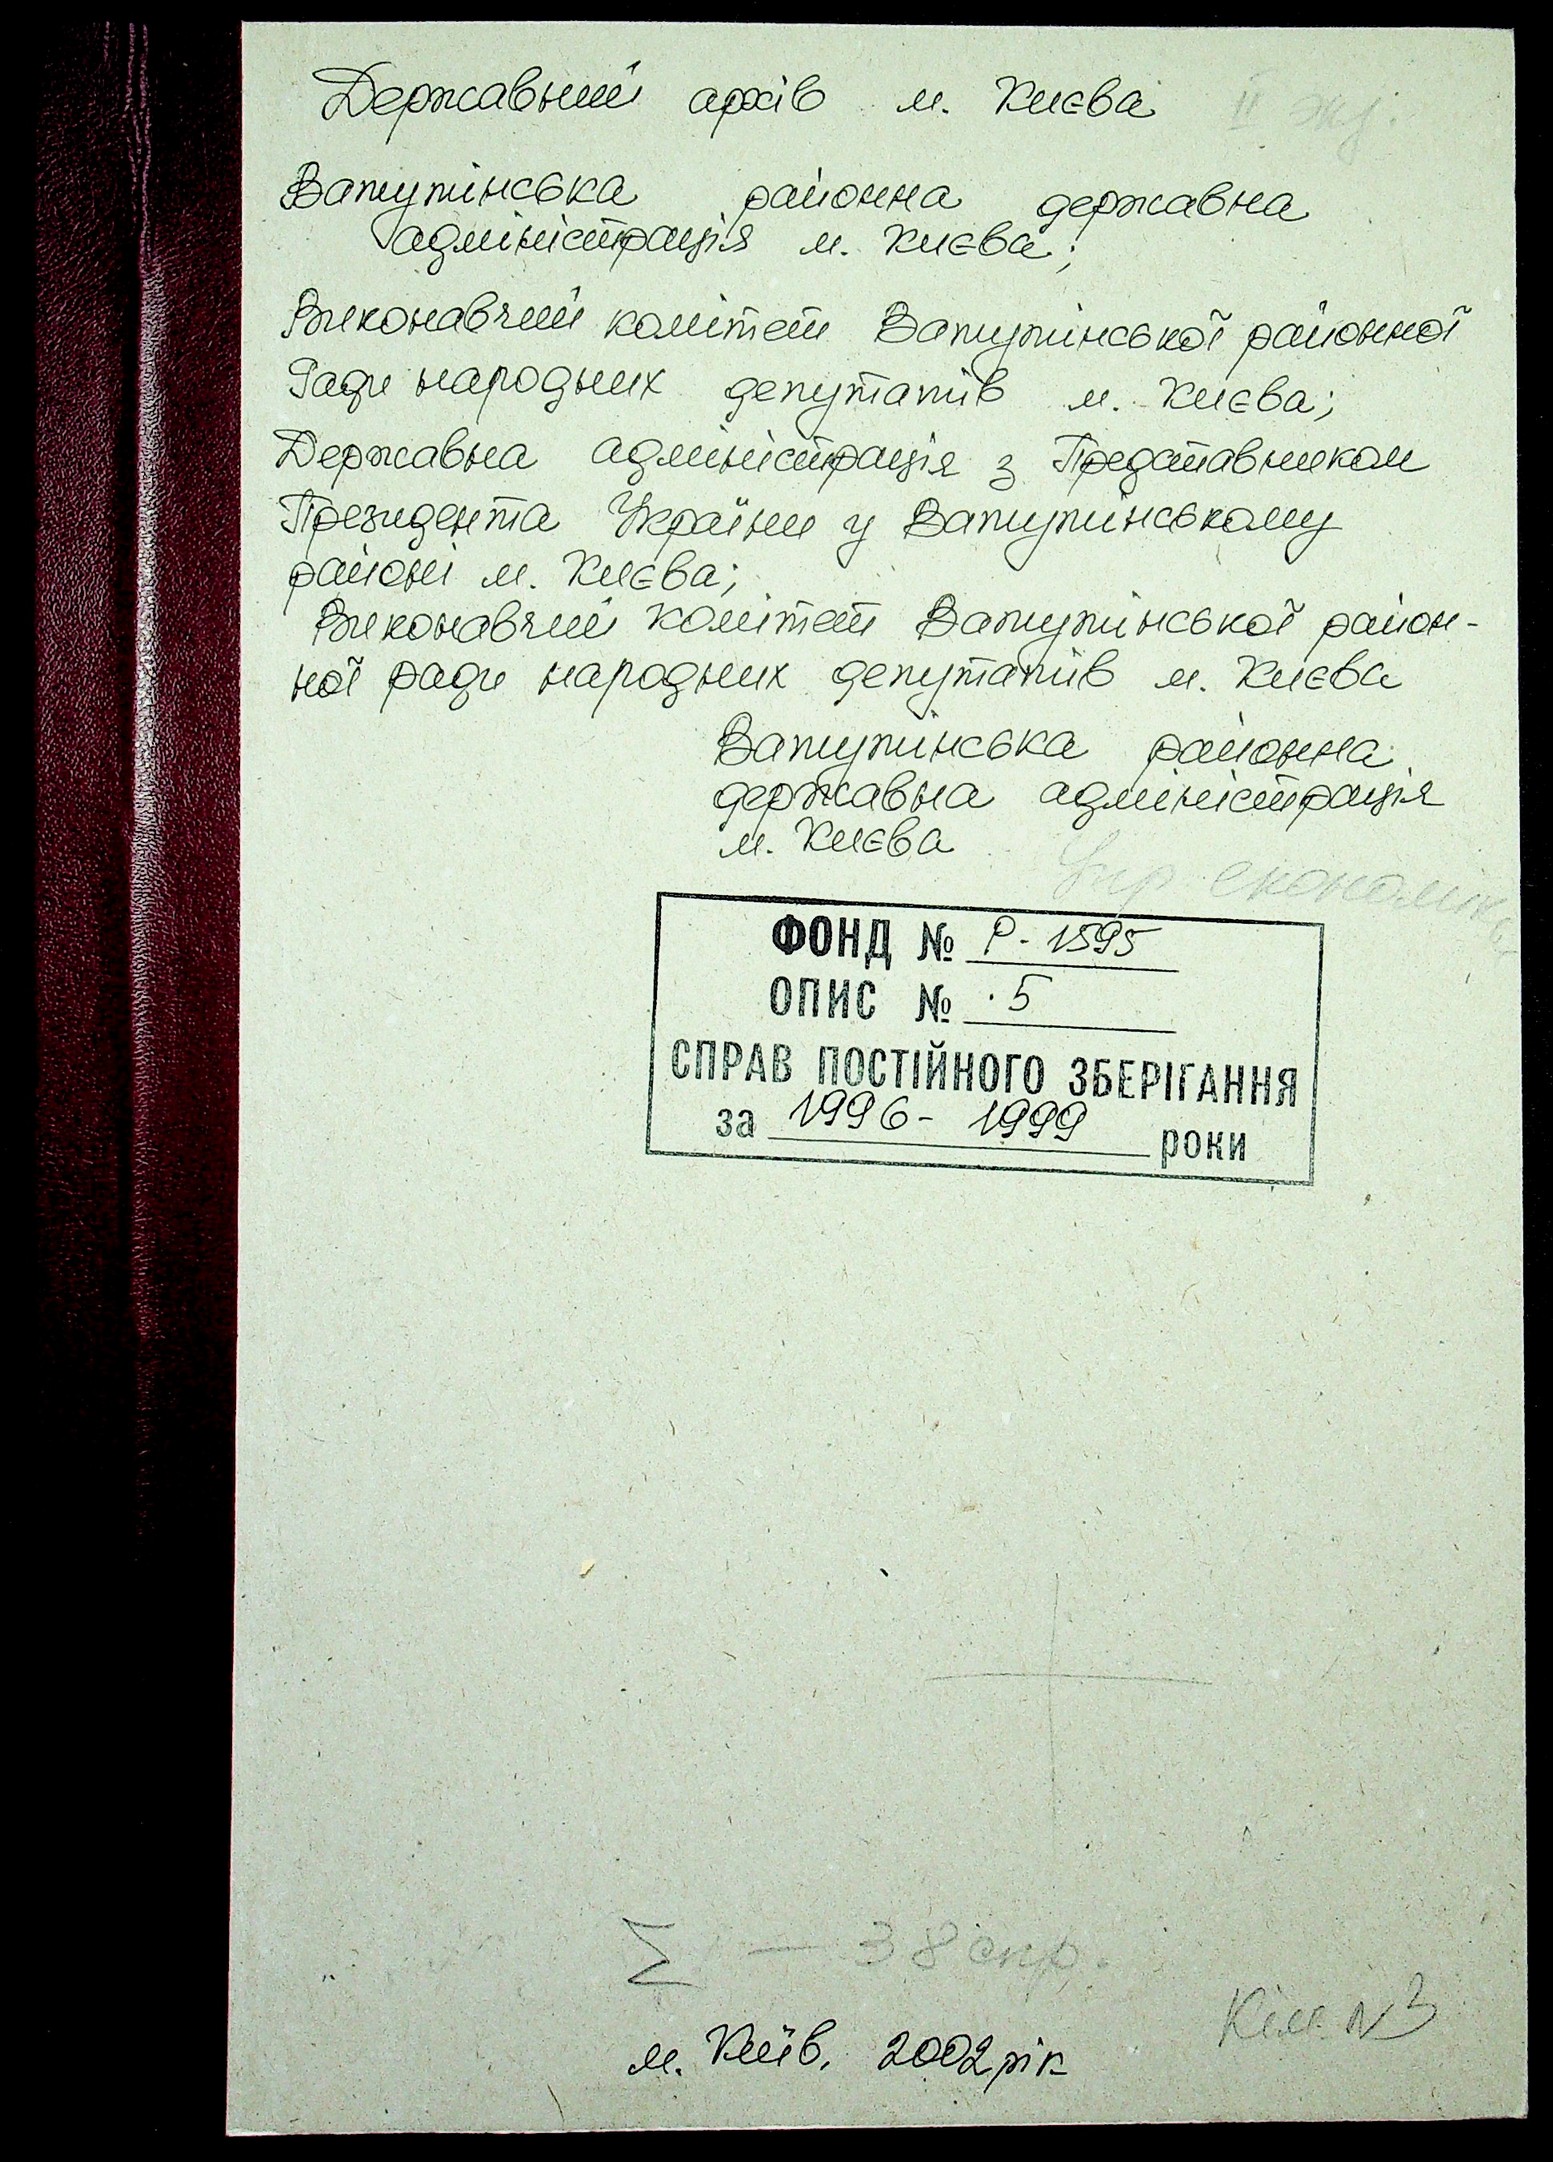 Державний архів м. Києва II экз.
Ватутінська районна державна
адміністрація м. Києва;
Виконавчий комітет Ватутінської районної
Ради народних депутатів м. Києва;
Державна адміністрація з Представником
Президента України у Ватутінському
районі м. Києва;
Виконавчий комітет Ватутінської район-
ної ради народних депутатів м. Києва
Ватутінська районна
державна адміністрація
м. Києва
Упр економіки
ФОНД № Р-1595
ОПИС № 5
СПРАВ ПОСТІЙНОГО ЗБЕРІГАННЯ
за 1996-1999 роки
Σ — 38 спр.
Кім. N3
м. Київ, 2002 рік